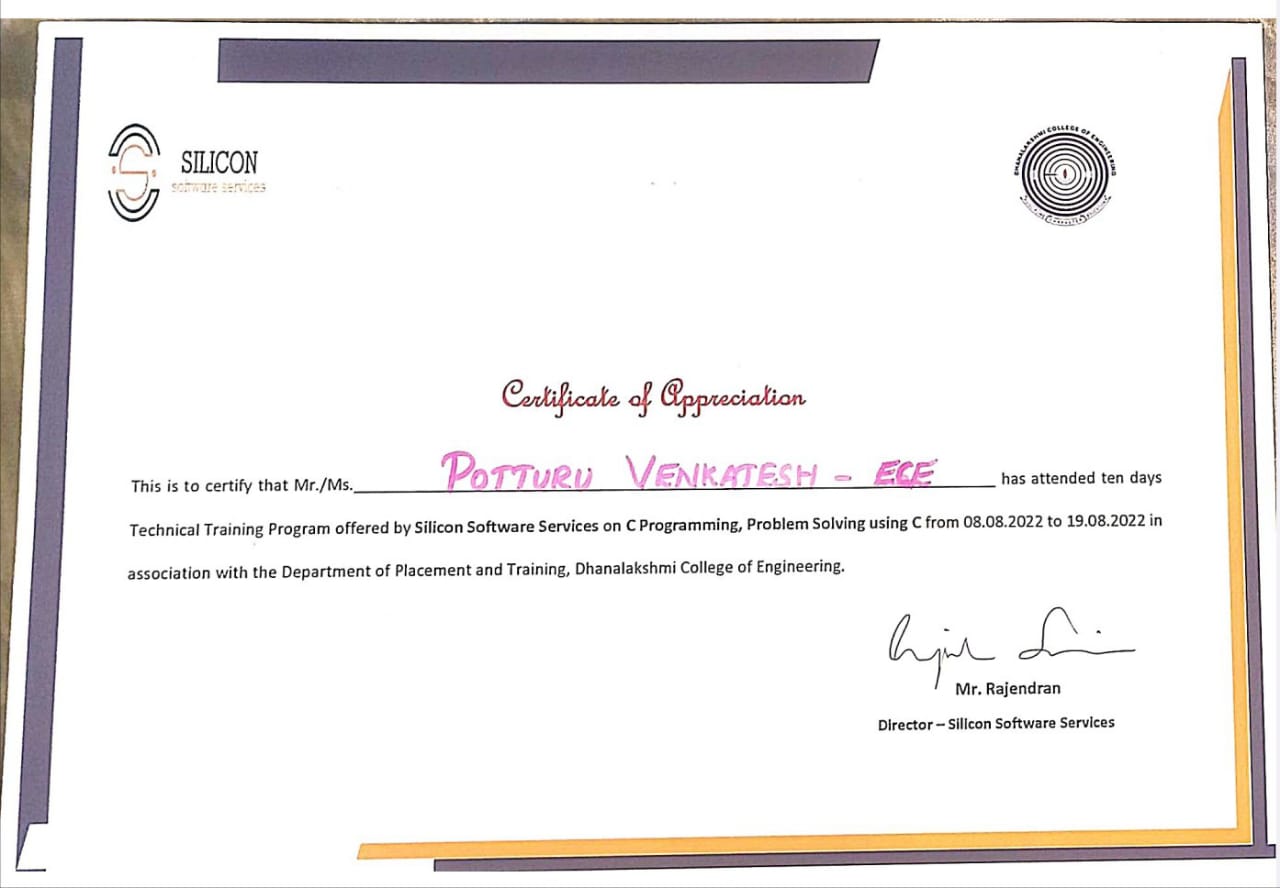 SILICON
software services
DHANALAKSHMI COLLEGE OF ENGINEERING
Certificate of Appreciation
This is to certify that Mr./Ms. POTTURU VENKATESH - ECE has attended ten days
Technical Training Program offered by Silicon Software Services on C Programming, Problem Solving using C from 08.08.2022 to 19.08.2022 in
association with the Department of Placement and Training, Dhanalakshmi College of Engineering.
Mr. Rajendran
Director – Silicon Software Services